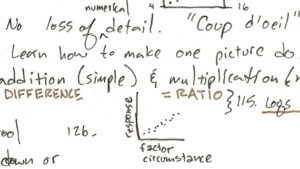 numerical 4 16
No loss of detail. "Coup d'oeil"
Learn how to make one picture do
addition (simple) & multiplication
DIFFERENCE = RATIO } 115. Logs
response
126.
down or
factor
circumstance